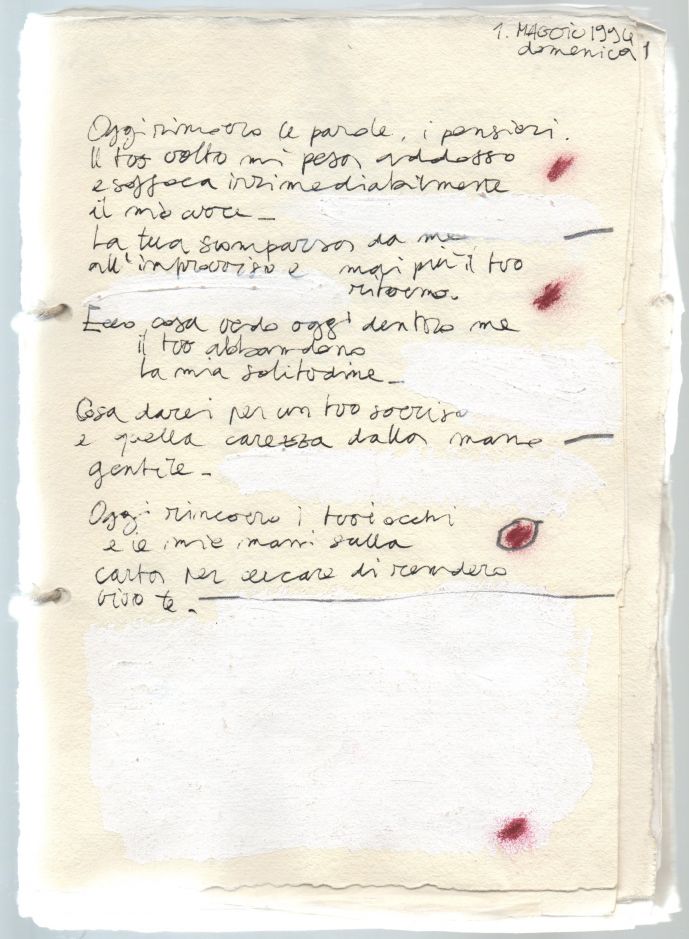 1. MAGGIO 1994
domenica 1
Oggi rincorro le parole, i pensieri.
Il tuo volto mi pesa addosso
e soffoca irrimediabilmente
il mio cuore_
La tua scomparsa da me
all'improvviso e mai più il tuo
ritorno.
Ecco cosa vedo oggi dentro me
il tuo abbandono
la mia solitudine_
Cosa darei per un tuo sorriso
e quella carezza dalla mano
gentile_
Oggi rincorro i tuoi occhi
e le mie mani sulla
carta per cercare di rendere
vivo te_